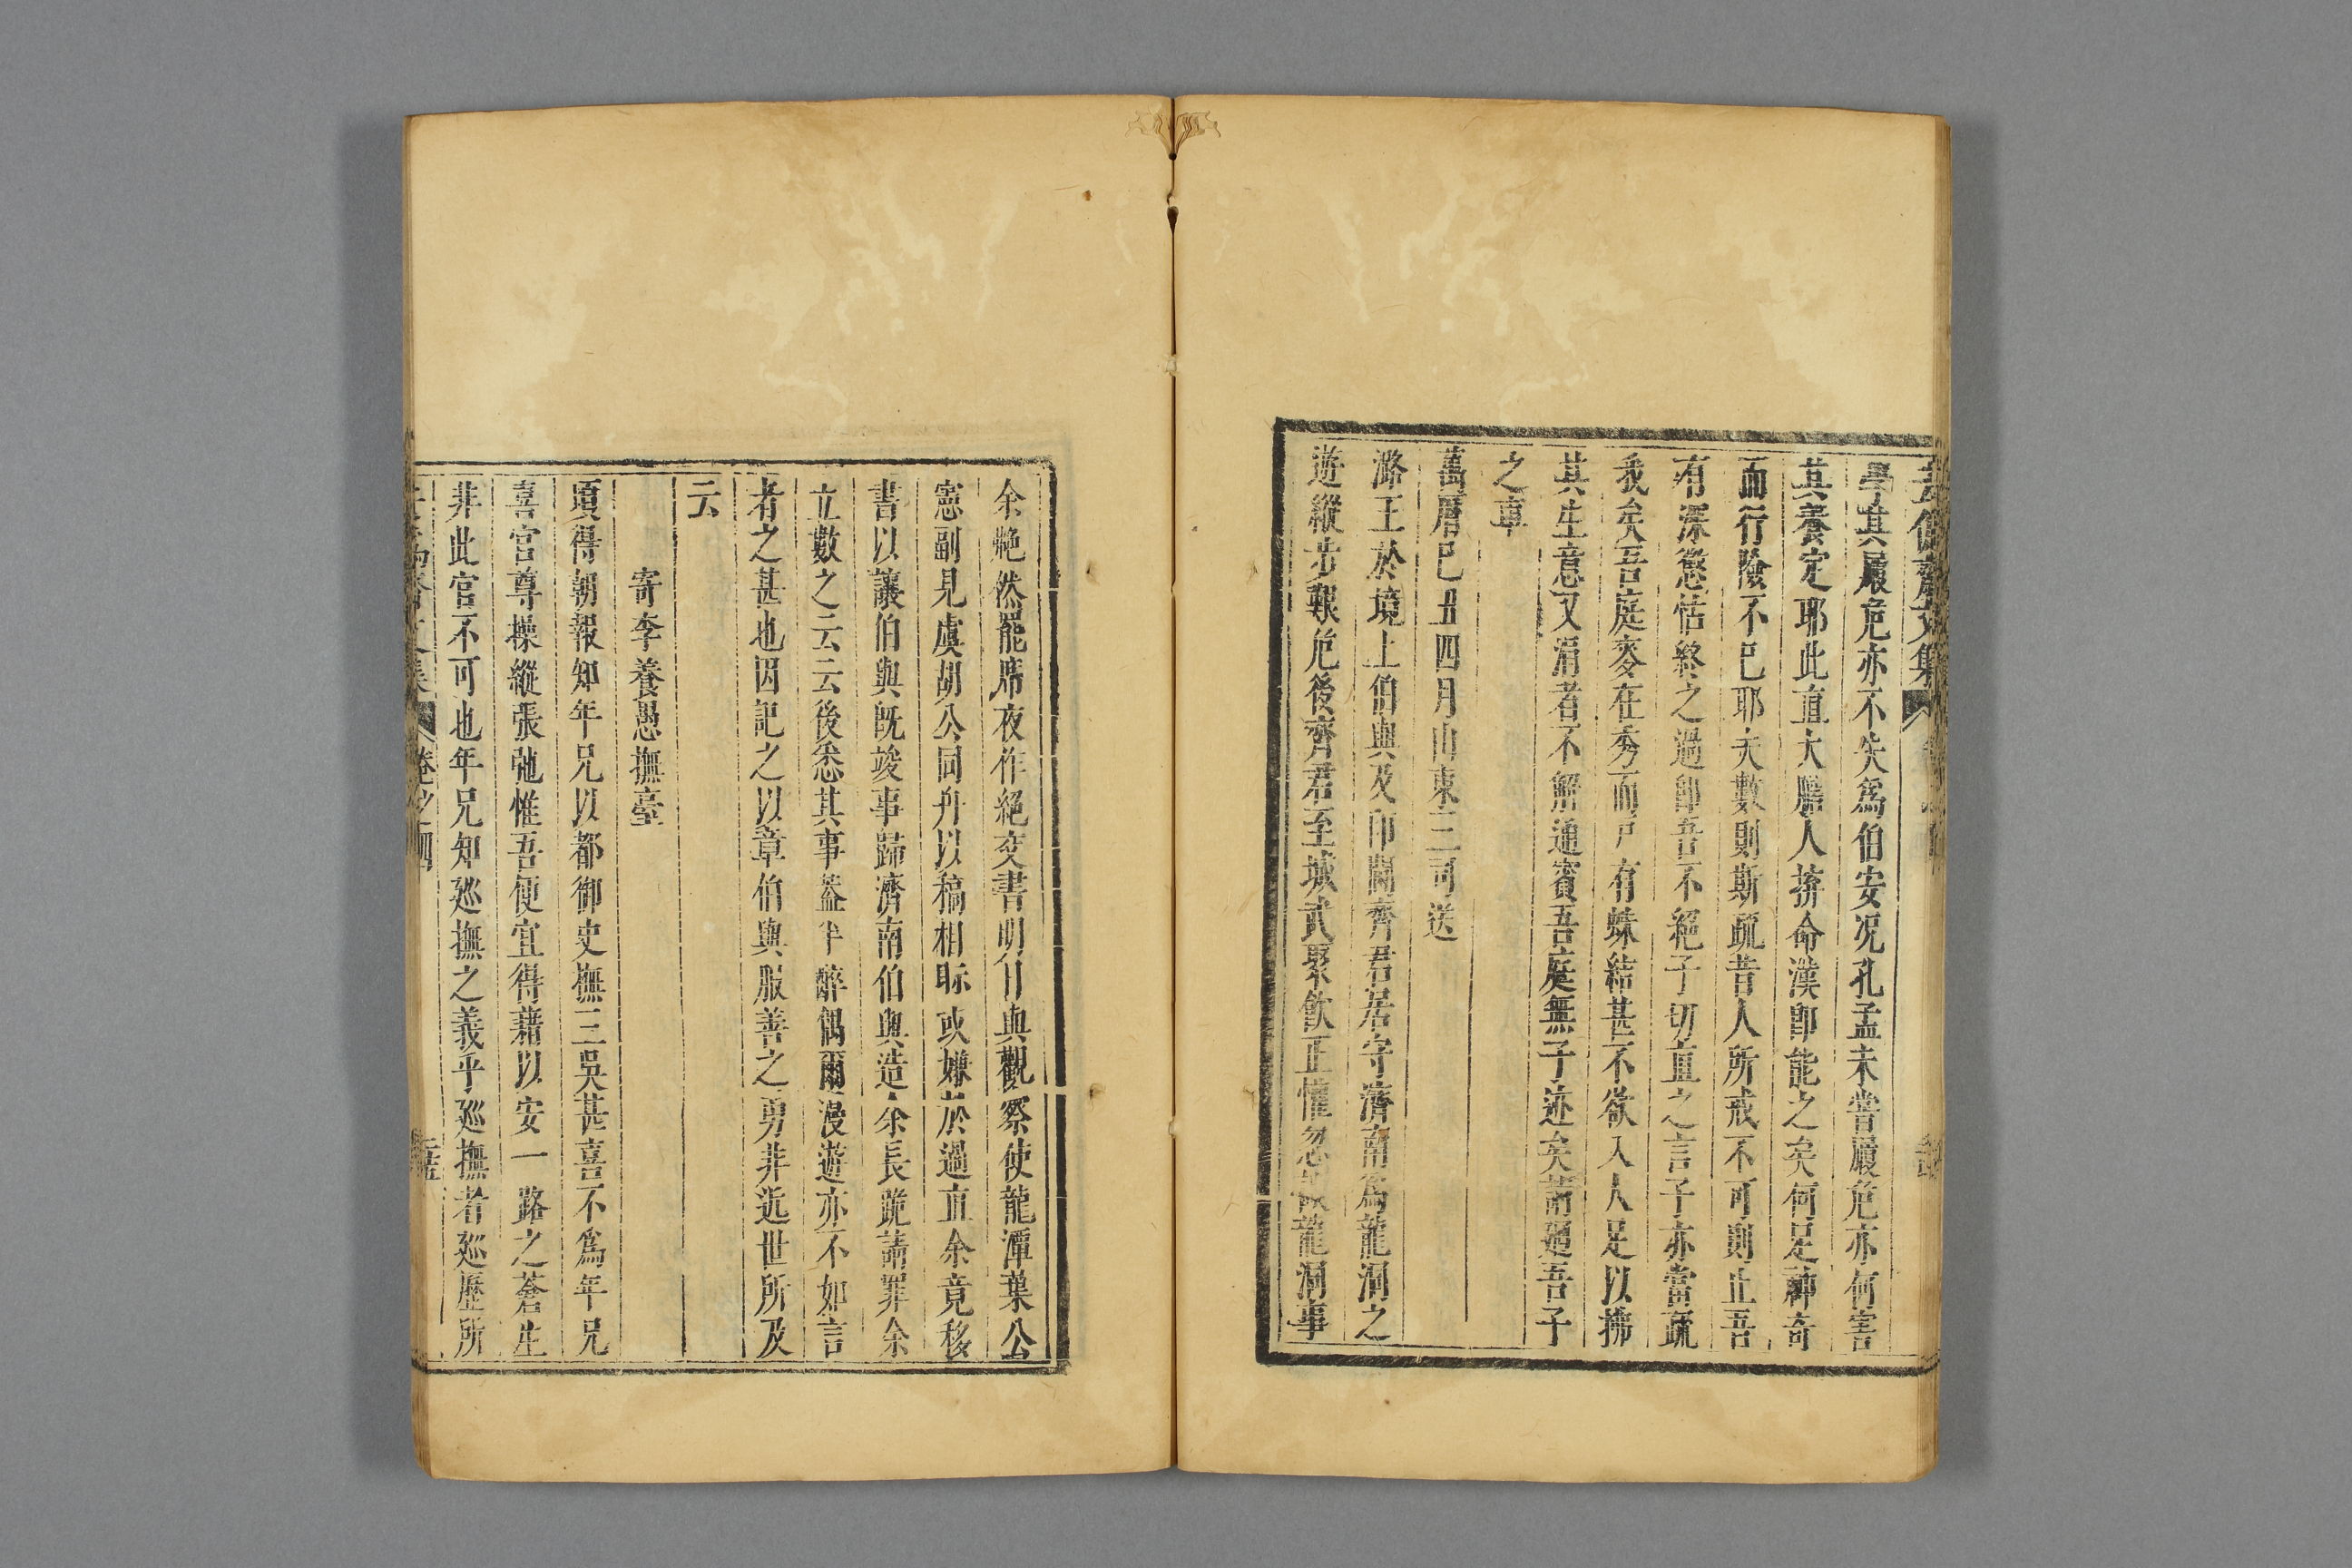 學其履危亦不失爲伯安况孔孟未嘗履危亦何害
其養定耶此直大膽人拚命漢即能之矣何足神奇
而行險不已耶夫數則斯疏昔人所戒不可則止吾
有深慾怙終之過即吾不絕子切直之言子亦當疏
我矣吾庭麥在秀而戸有蛛結甚不欲入人足以掃
其生意又涓者不解通賓吾庭無子迹矣請𢌞吾子
之車
萬曆已丑四月山東三司送
潞王於境上伯與及印闗齊君居守濟南爲龍洞之
遊縱步艱危後齊君至城武聚飲正懽忽龍洞事
余艴然罷席夜作絕交書明日與觀察使龍潭葉公
憲副見虞胡公同舟以稿相眎或嫌於過直余竟移
書以讓伯與既竣事歸濟南伯與造余長跪請罪余
立數之云云後悉其事葢半醉偶爾漫遊亦不如言
者之甚也因記之以章伯與服善之勇非近世所及
云
寄李養愚撫臺
頃得朝報知年兄以都御史撫三吳甚喜不爲年兄
喜官尊操縱張弛惟吾便宜得藉以安一路之蒼生
非此官不可也年兄知廵撫之義乎廵撫者廵歷所